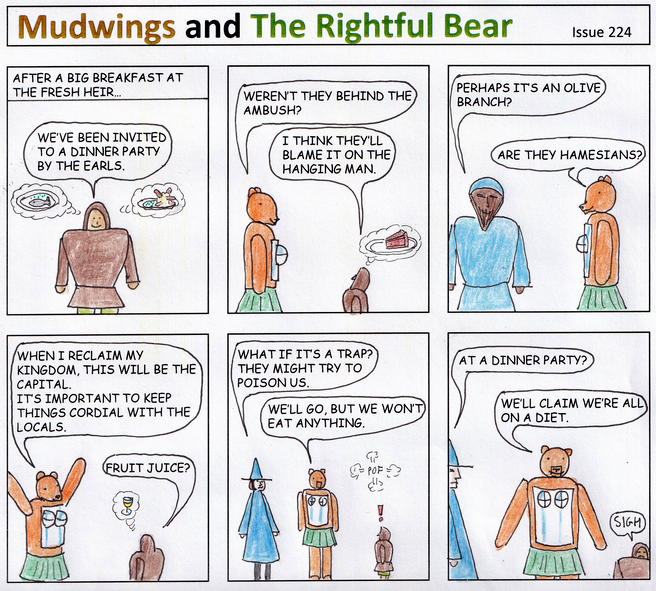 Mudwings and The Rightful Bear
Issue 224
AFTER A BIG BREAKFAST AT
THE FRESH HEIR...
WE'VE BEEN INVITED
TO A DINNER PARTY
BY THE EARLS.
WEREN'T THEY BEHIND THE
AMBUSH?
I THINK THEY'LL
BLAME IT ON THE
HANGING MAN.
PERHAPS IT'S AN OLIVE
BRANCH?
ARE THEY HAMESIANS?
WHEN I RECLAIM MY
KINGDOM, THIS WILL BE THE
CAPITAL.
IT'S IMPORTANT TO KEEP
THINGS CORDIAL WITH THE
LOCALS.
FRUIT JUICE?
WHAT IF IT'S A TRAP?
THEY MIGHT TRY TO
POISON US.
WE'LL GO, BUT WE WON'T
EAT ANYTHING.
POF
!
AT A DINNER PARTY?
WE'LL CLAIM WE'RE ALL
ON A DIET.
SIGH